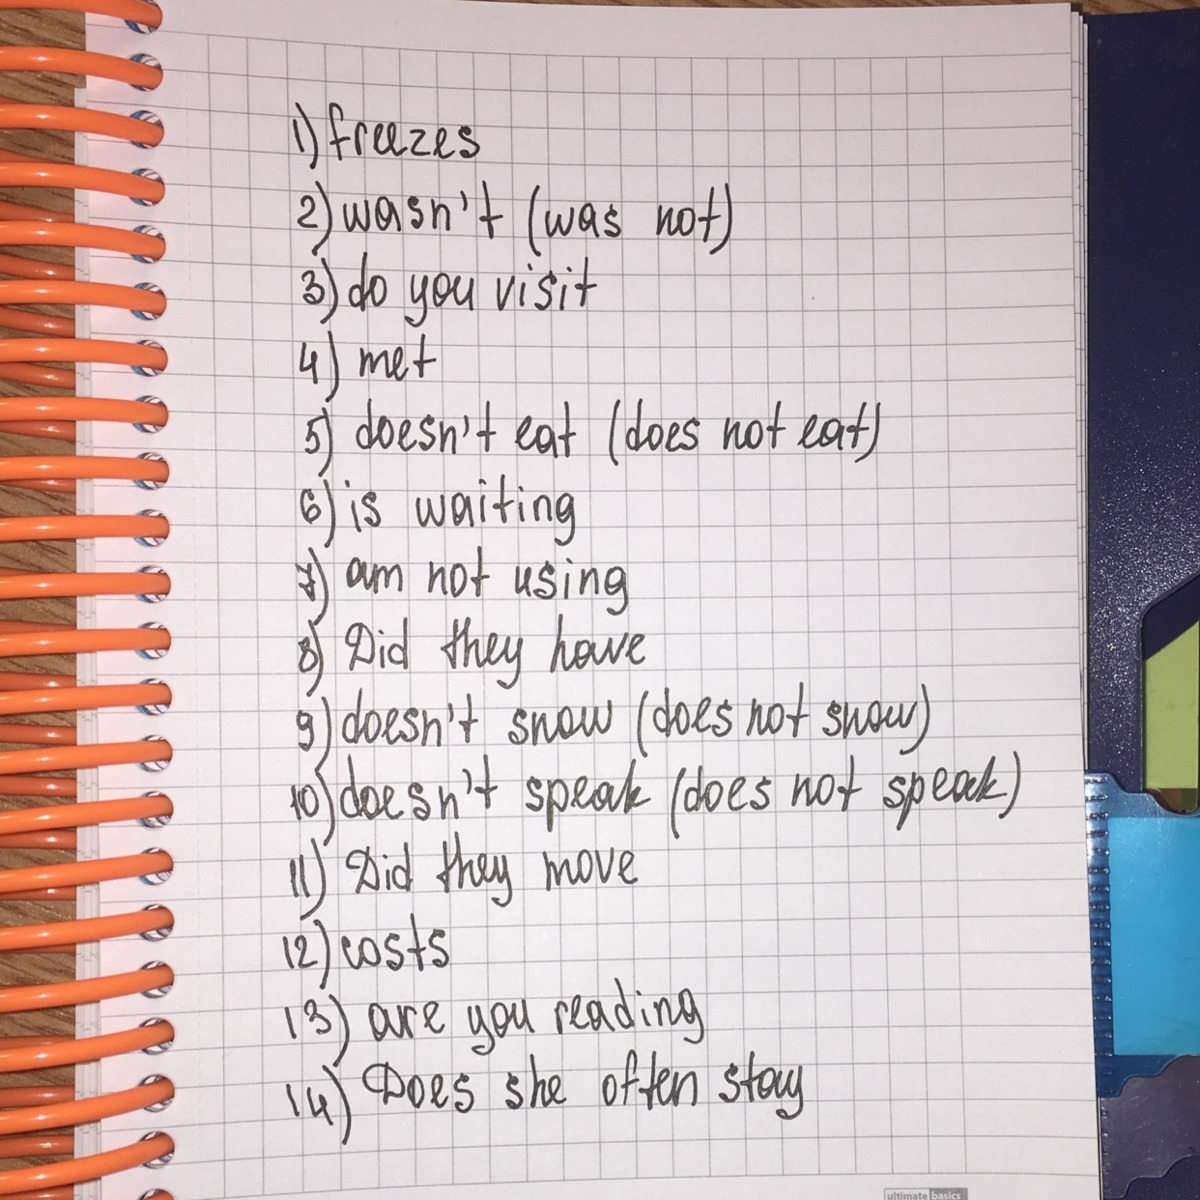 1) freezes
2) wasn't (was not)
3) do you visit
4) met
5) doesn't eat (does not eat)
6) is waiting
7) am not using
8) Did they have
9) doesn't snow (does not snow)
10) doesn't speak (does not speak)
11) Did they move
12) costs
13) are you reading
14) Does she often stay
ultimate basics